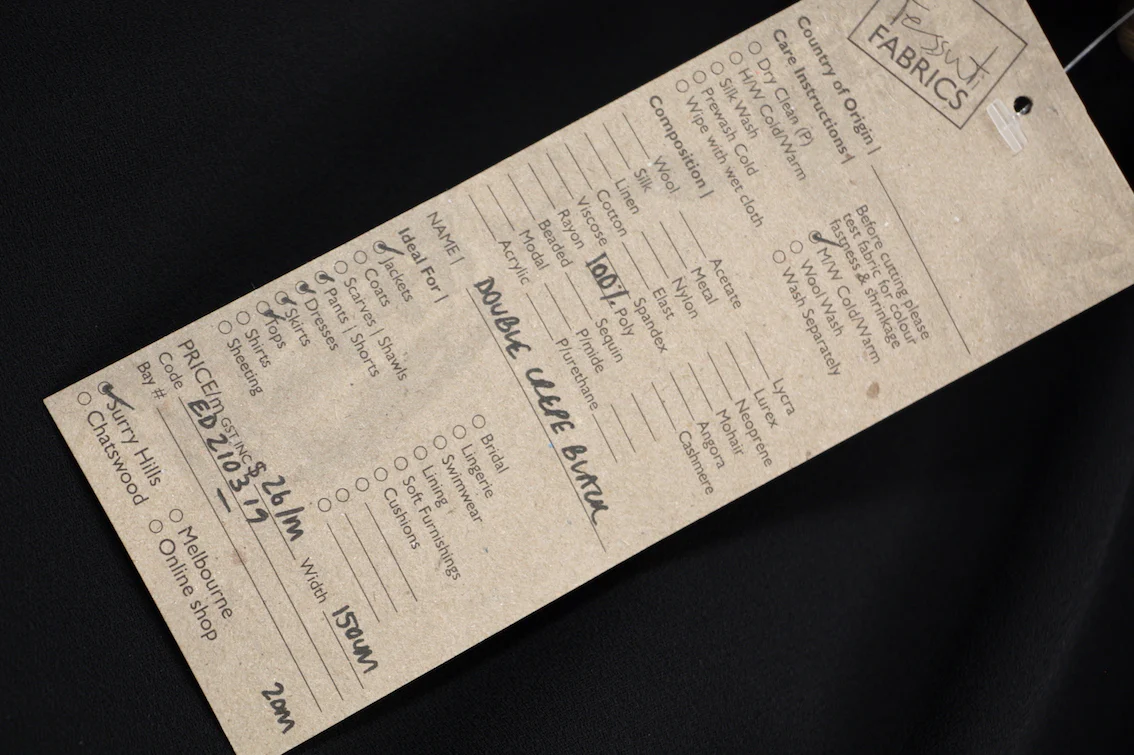 Tessuti
FABRICS
Country of Origin |
Care Instructions |
Dry Clean (P)
H/W Cold/Warm
Silk Wash
Prewash Cold
Wipe with wet cloth
Before cutting please
test fabric for colour
fastness & shrinkage
M/W Cold/Warm
Wool Wash
Wash Separately
Composition |
Wool
Silk
Linen
Cotton
Viscose
Rayon
Beaded
Modal
Acrylic
Acetate
Metal
Nylon
Elast
Spandex
100% Poly
Sequin
P/mide
P/urethane
Lycra
Lurex
Neoprene
Mohair
Angora
Cashmere
NAME | DOUBLE CREPE BLACK
Ideal For |
Jackets
Coats
Scarves | Shawls
Pants | Shorts
Dresses
Skirts
Tops
Shirts
Sheeting
Bridal
Lingerie
Swimwear
Lining
Soft Furnishings
Cushions
PRICE/m GST INC $26/m Width 150cm
Code ED210319
Bay # –
Surry Hills
Chatswood
Melbourne
Online shop
20m